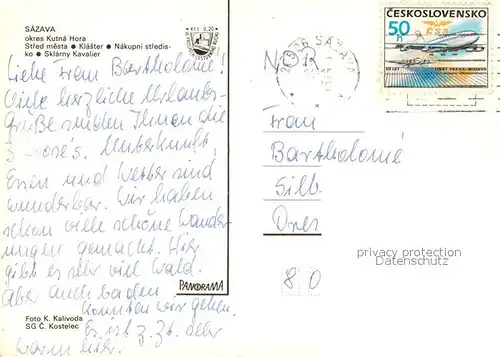 SÁZAVA
okres Kutná Hora
Střed města ● Klášter ● Nákupní středis-
ko ● Sklárny Kavalier
Liebe Frau Bartholomé!
Viele herzliche Urlaubs-
grüße senden Ihnen die
3 Unterkunft,
Essen und Wetter sind
wunderbar. Wir haben
schon viele schöne Wander-
ungen gemacht. Hier
gibt es sehr viel Wald.
Aber auch baden
konnten wir gehen.
Es ist z. Zt. sehr
warm hier.
PANORAMA
Foto K. Kalivoda
SG Č. Kostelec
KčS 0,20
SÁZAVA
ČESKOSLOVENSKO
50
ČSA
Frau
Bartholomé
80
privacy protection
Datenschutz